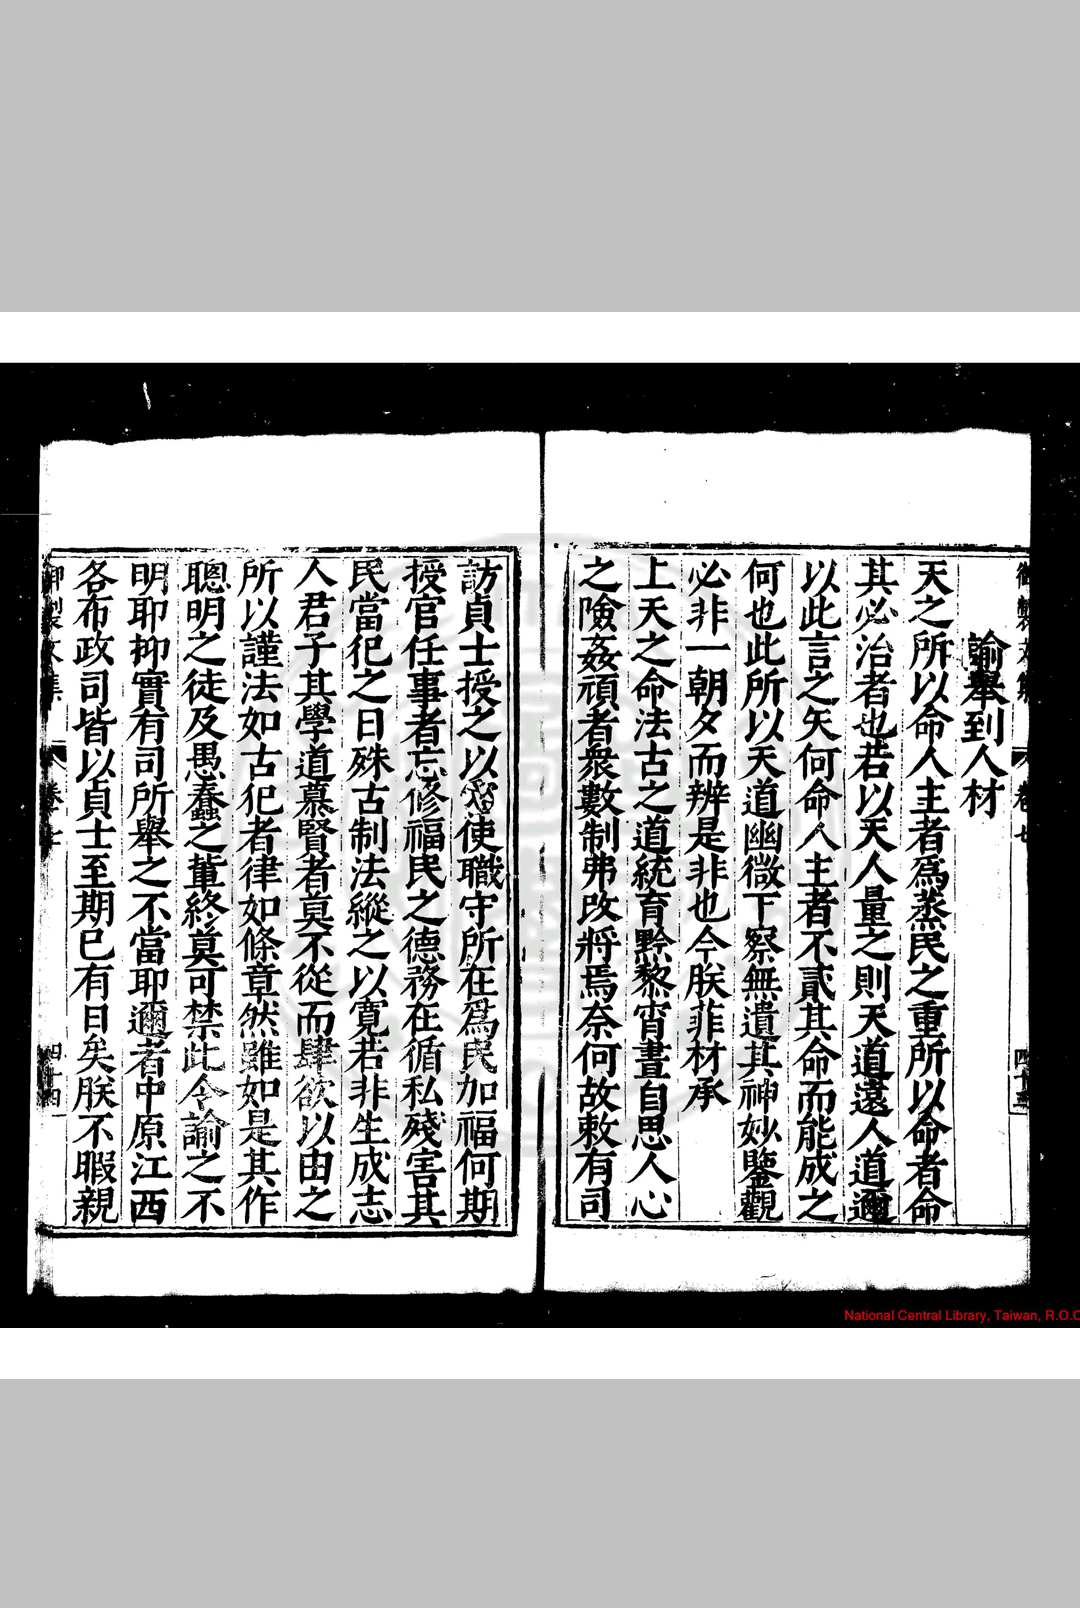 諭舉到人材
天之所以命人主者爲蒸民之重所以命者命
其必治者也若以天人量之則天道遠人道邇
以此言之天何命人主者不貳其命而能成之
何也此所以天道幽微下察無遺其神妙鑒觀
必非一朝夕而辨是非也今朕菲材承
上天之命法古之道統育黔黎宵晝自思人心
之險姦頑者衆數制弗改將焉奈何故敕有司
訪貞士授之以官使職守所在爲民加福何期
授官任事者忘修福民之德務在循私殘害其
民當犯之日殊古制法縱之以寬若非生成志
人君子其學道慕賢者莫不從而肆欲以由之
所以謹法如古犯者律如條章然雖如是其作
聰明之徒及愚蠢之輩終莫可禁此令諭之不
明耶抑實有司所舉之不當耶邇者中原江西
各布政司皆以貞士至期已有日矣朕不暇親
御製文集 卷七 四十四
National Central Library, Taiwan, R.O.C